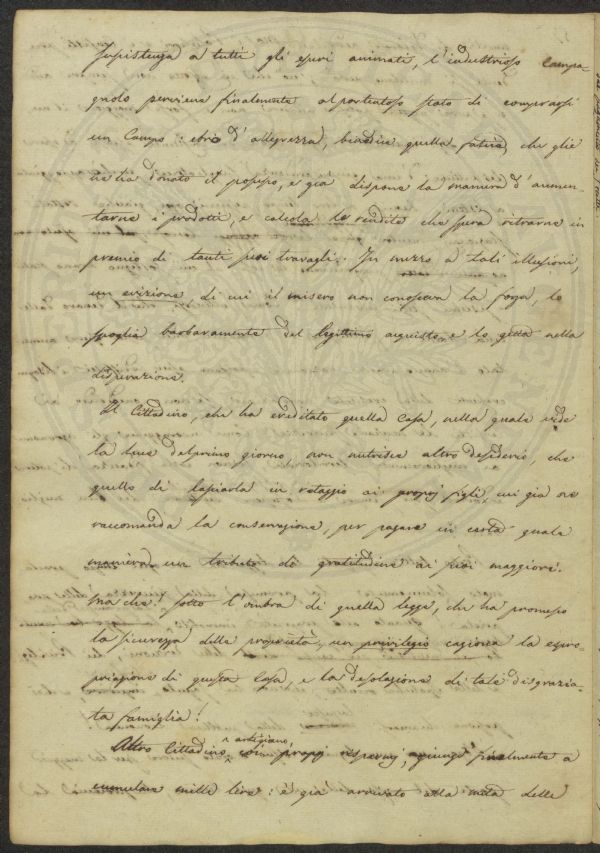 sussistenza a tutti gli esseri animati, l'industrioso Campa-
gnolo perviene finalmente al portentoso stato di comprarsi
un Campo: ebro d'allegrezza, benedice quella fatica, che glie
ne ha donato il possesso, e già dispone la maniera d'aumen-
tarne i prodotti, e calcola le rendite che spera ritrarne in
premio di tanti suoi travagli. In mezzo a tali illusioni,
un evizione, di cui il misero non conosceva la forza, lo
spoglia barbaramente del legittimo acquisto, e lo getta nella
disperazione.
Il Cittadino, che ha ereditato quella casa, nella quale vide
la luce del primo giorno, non nutrisce altro desiderio, che
quello di lasciarla in retaggio ai proprj figli, cui già ne
raccomanda la conservazione, per pagare in certa quale
maniera un tributo di gratitudine ai suoi maggiori.
Ma che! sotto l'ombra di quella legge, che ha promesso
la sicurezza delle proprietà, un privilegio cagiona la espro-
priazione di questa casa, e la desolazione di tale disgrazia-
ta famiglia!
Altro Cittadino artigiano, coi proprj risparmj, giunge finalmente a
cumulare mille lire: è già arrivato alla metà delle